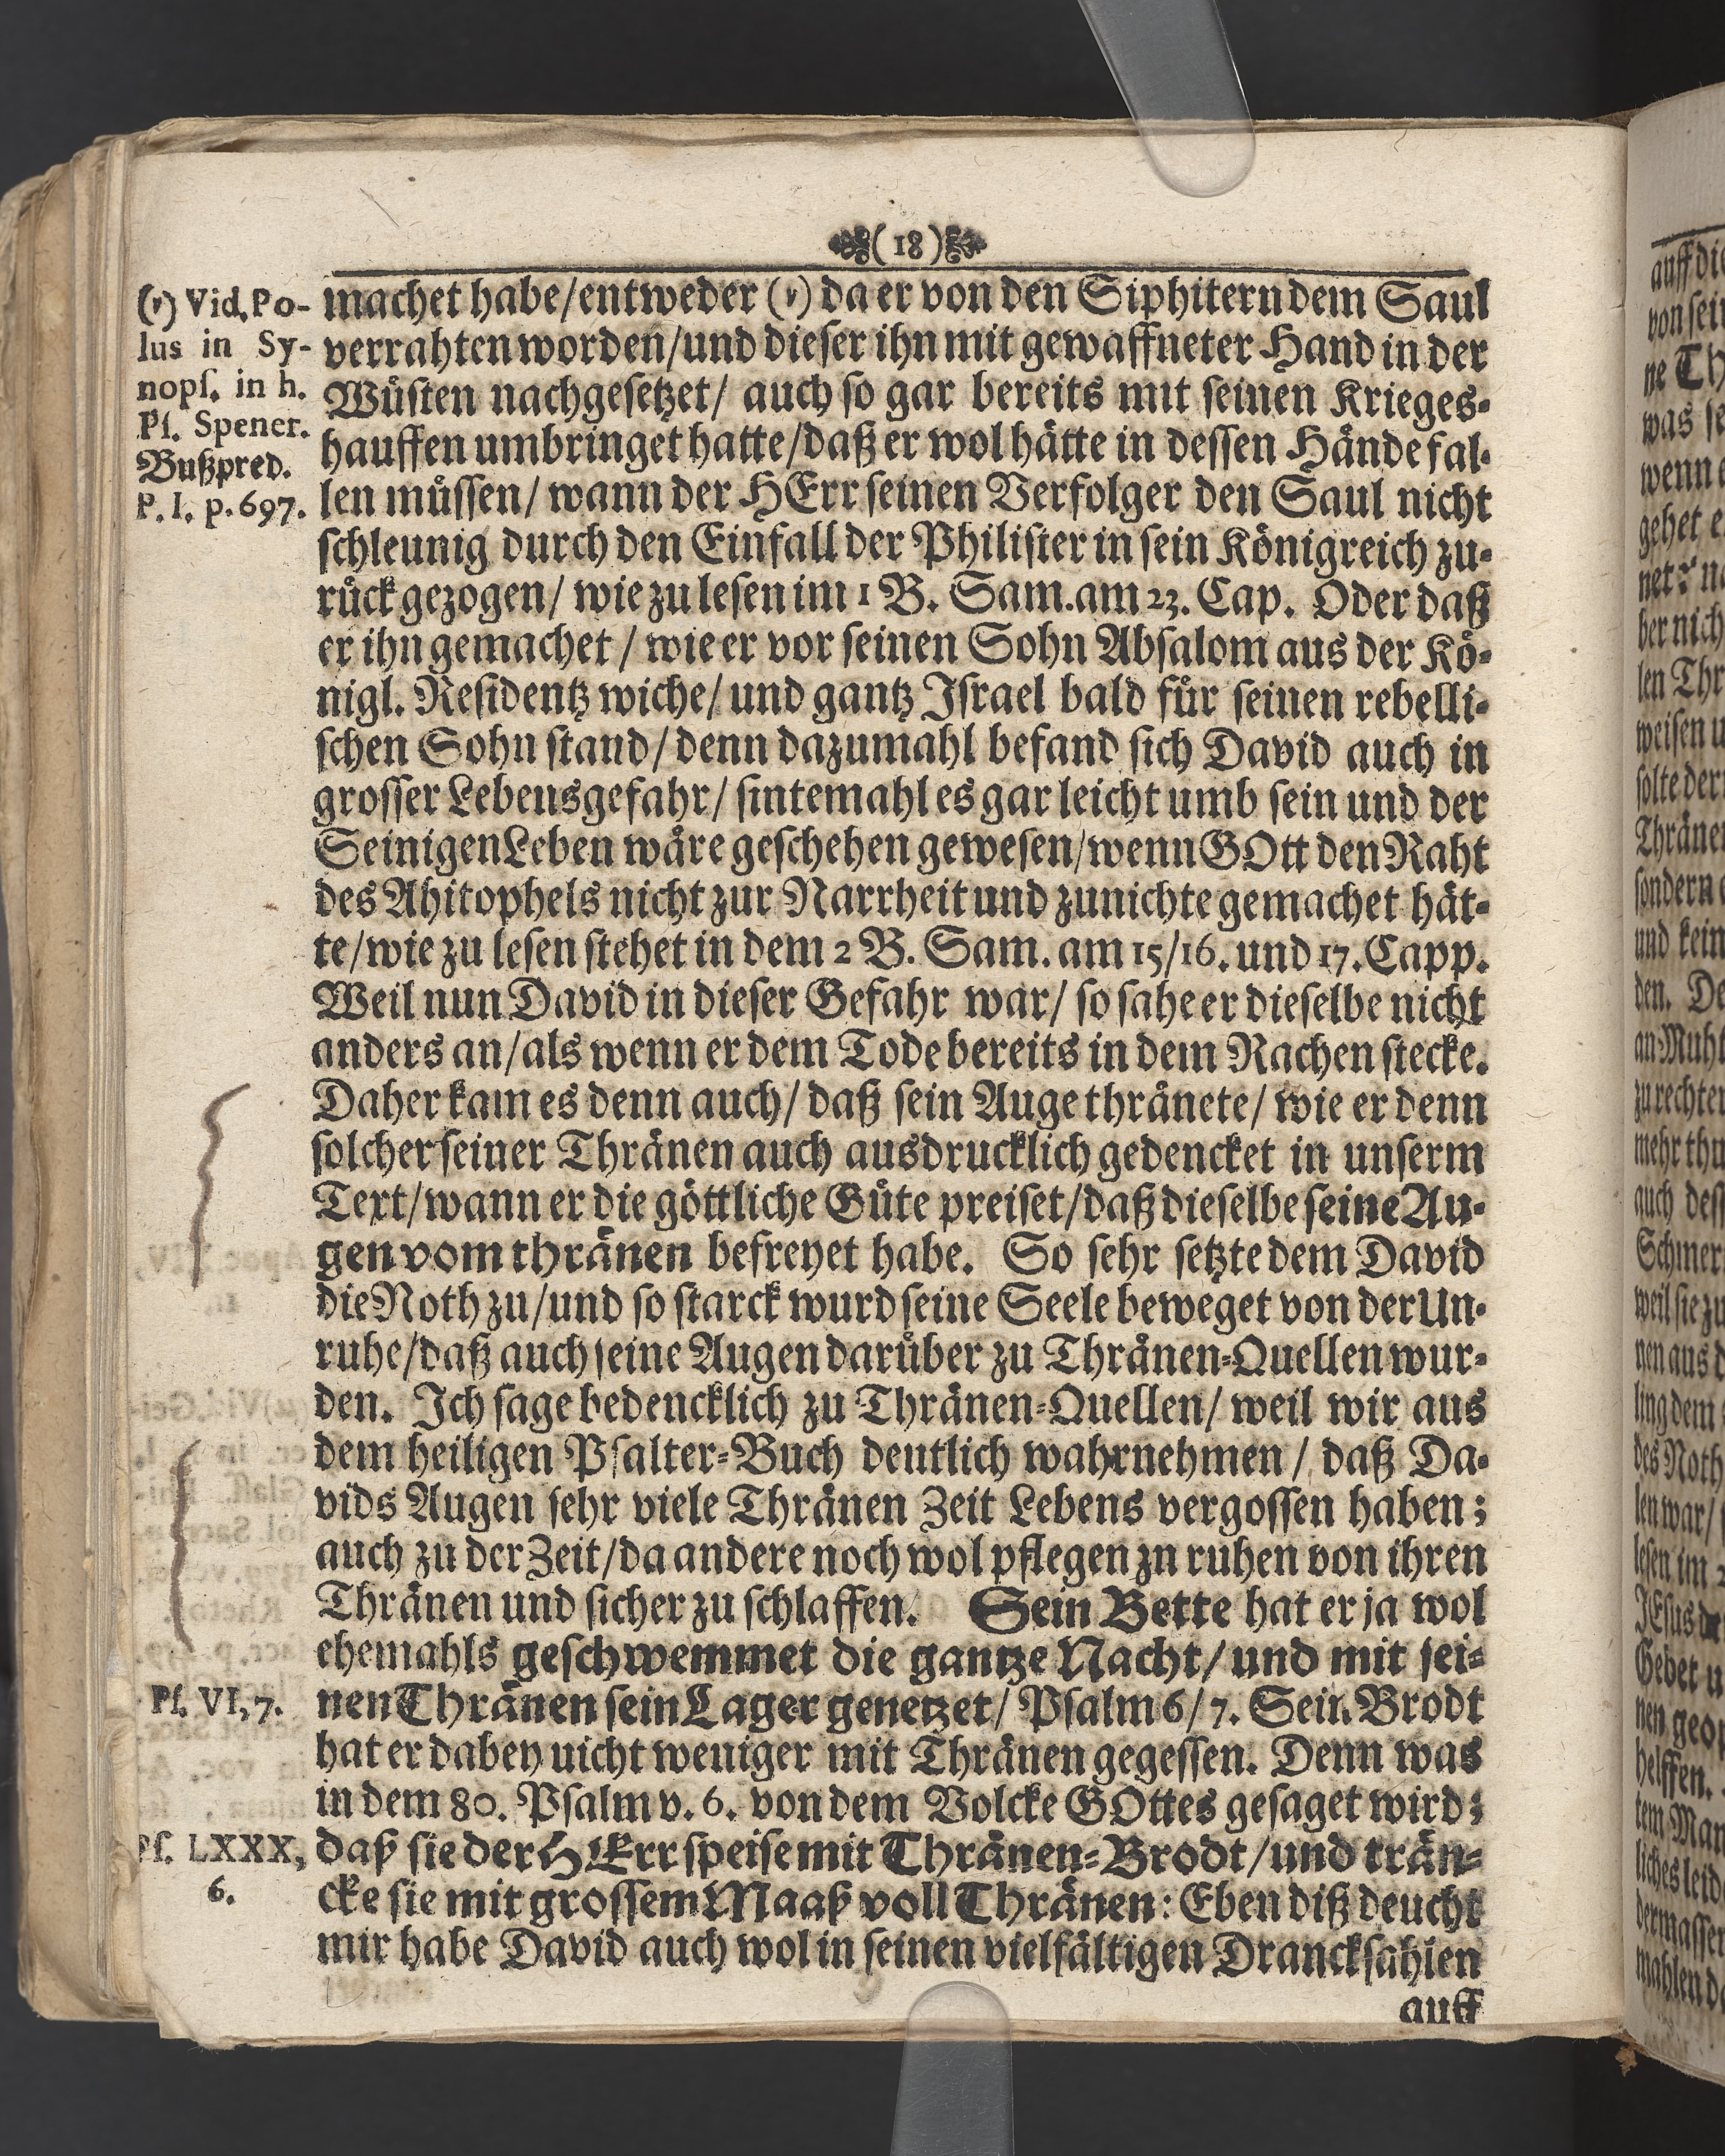 (18)
(ν) Vid. Po-
lus in Sy-
nopſ. in h.
Pſ. Spener.
Bußpred.
P. I. p. 697.
machet habe/entweder (ν) da er von den Siphitern dem Saul
verrahten worden/und dieſer ihn mit gewaffneter Hand in der
Wuͤſten nachgeſetzet/ auch ſo gar bereits mit ſeinen Krieges-
hauffen umbringet hatte/daß er wol haͤtte in deſſen Haͤnde fal-
len muͤſſen/ wann der HErr ſeinen Verfolger den Saul nicht
ſchleunig durch den Einfall der Philiſter in ſein Koͤnigreich zu-
ruͤck gezogen/ wie zu leſen im 1 B. Sam. am 23. Cap. Oder daß
er ihn gemachet / wie er vor ſeinen Sohn Abſalom aus der Koͤ-
nigl. Reſidentz wiche/ und gantz Iſrael bald fuͤr ſeinen rebelli-
ſchen Sohn ſtand/ denn dazumahl befand ſich David auch in
groſſer Lebensgefahr/ ſintemahl es gar leicht umb ſein und der
Seinigen Leben waͤre geſchehen geweſen/wenn GOtt den Raht
des Ahitophels nicht zur Narrheit und zunichte gemachet haͤt-
te/wie zu leſen ſtehet in dem 2 B. Sam. am 15/16. und 17. Capp.
Weil nun David in dieſer Gefahr war/ ſo ſahe er dieſelbe nicht
anders an/als wenn er dem Tode bereits in dem Rachen ſtecke.
Daher kam es denn auch/ daß ſein Auge thraͤnete/ wie er denn
ſolcher ſeiner Thraͤnen auch ausdrucklich gedencket in unſerm
Text/wann er die goͤttliche Guͤte preiſet/daß dieſelbe ſeine Au-
gen vom thraͤnen befreyet habe. So ſehr ſetzte dem David
die Noth zu/und ſo ſtarck wurd ſeine Seele beweget von der Un-
ruhe/daß auch ſeine Augen daruͤber zu Thraͤnen-Quellen wur-
den. Ich ſage bedencklich zu Thraͤnen-Quellen/ weil wir aus
dem heiligen Pſalter-Buch deutlich wahrnehmen / daß Da-
vids Augen ſehr viele Thraͤnen Zeit Lebens vergoſſen haben;
auch zu der Zeit/da andere noch wol pflegen zn ruhen von ihren
Thraͤnen und ſicher zu ſchlaffen. Sein Bette hat er ja wol
ehemahls geſchwemmet die gantze Nacht/ und mit ſei-
nen Thraͤnen ſein Lager genetzet/ Pſalm 6/ 7. Sein Brodt
Pſ. VI, 7.
hat er dabey uicht weniger mit Thraͤnen gegeſſen. Denn was
in dem 80. Pſalm v. 6. von dem Volcke GOttes geſaget wird;
daß ſie der HErr ſpeiſe mit Thraͤnen-Brodt/und traͤn-
Pſ. LXXX,
6.
cke ſie mit groſſem Maaß voll Thraͤnen: Eben diß deucht
mir habe David auch wol in ſeinen vielfaͤltigen Dranckſahlen
auff